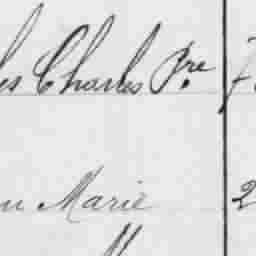 es Charles Pre 7
u Marie 2